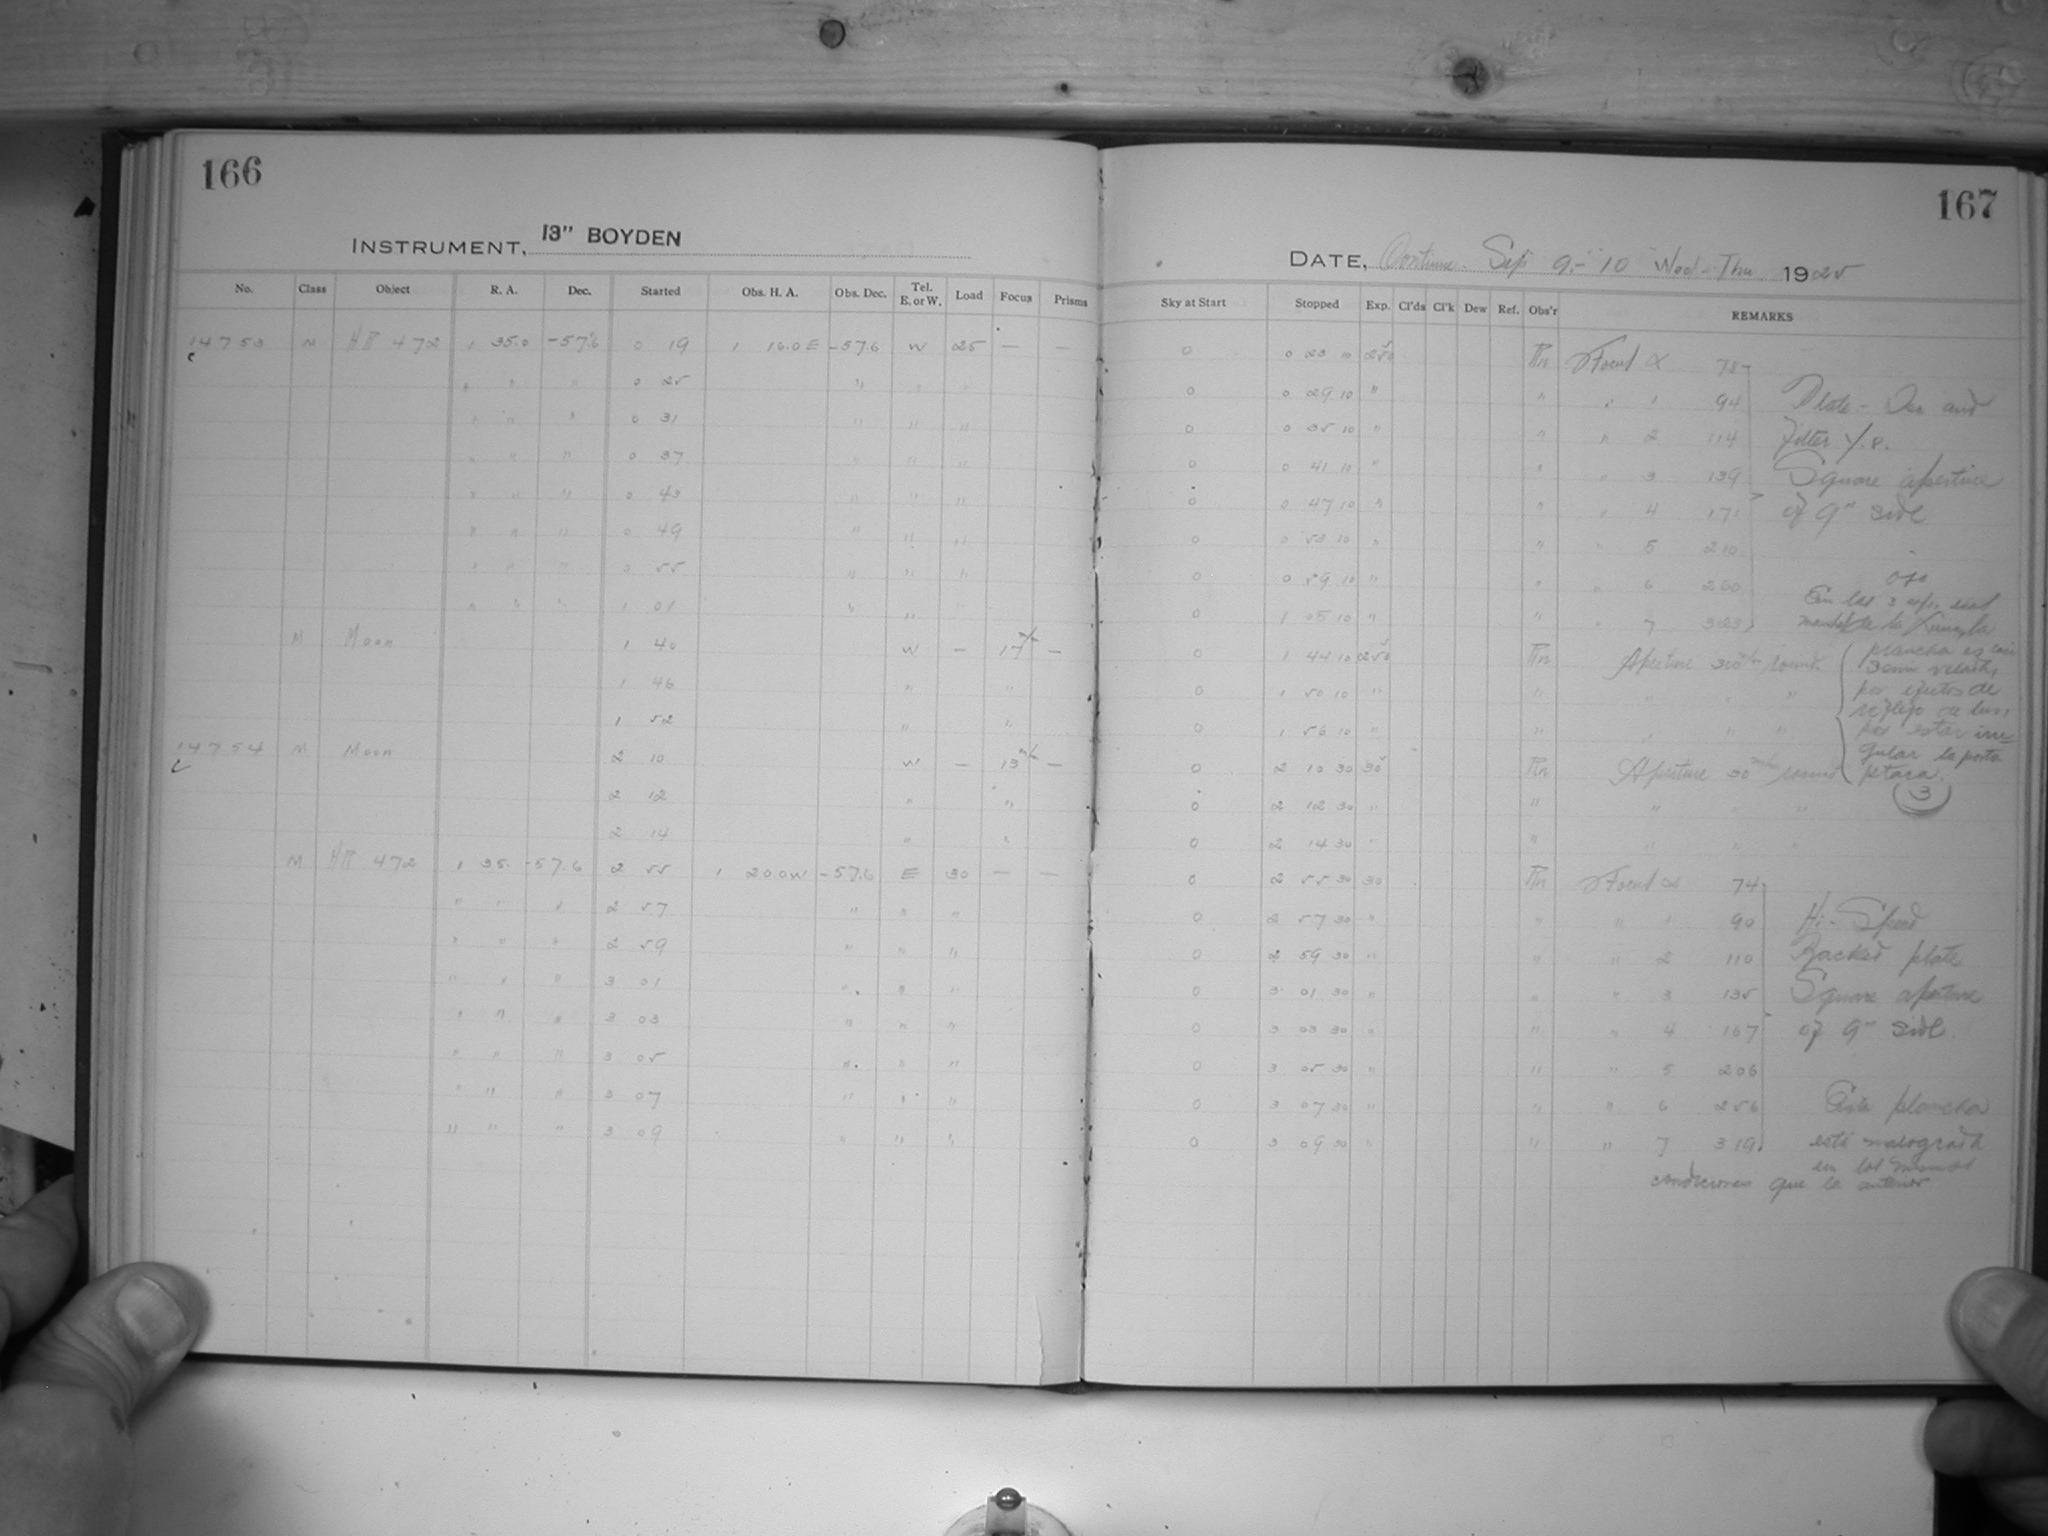 166
INSTRUMENT, 13" BOYDEN
No. Class Object R. A. Dec. Started Obs. H. A. Obs. Dec. Tel. E. or W. Load Focus Prisms
14753 M 472 1 35.0 -57.6 0 19 1 16.0 E -57.6 W 25 — —
" " " 0 25 " "
" " " 0 31 " " "
" " " 0 37 " " "
" " " 0 43 " " "
" " " 0 49 " " "
" " " 0 55 " " "
" " " 1 01 " "
M Moon 1 40 W — 17 —
1 46 " "
1 52 " "
14754 M Moon 2 10 W — 13 —
2 12 " "
2 14 " "
M 472 1 35. -57.6 2 55 1 20.0 W -57.6 E 30 — —
" " " 2 57 " " "
" " " 2 59 " " "
" " " 3 01 " " "
" " " 3 03 " " "
" " " 3 05 " " "
" " " 3 07 " " "
" " " 3 09 " " "
167
DATE, Continue. Sep 9.- 10 Wed - Thu 1925
Sky at Start Stopped Exp. Cl'ds Cl'k Dew Ref. Obs'r REMARKS
0 0 23 10 250 78
0 0 29 10 " " " 1 94 Plate - and
0 0 35 10 " " " 2 114 Filter
0 0 41 10 " " " 3 139 Square aperture
0 0 47 10 " " " 4 171 of 9" side
0 0 53 10 " " " 5 210
0 0 59 10 " " " 6 260 ojo
0 1 05 10 " " " 7 323 de la Luna, la
0 1 44 10 250 Aperture round plancha es
0 1 50 10 " " " " por efectos de
reflejo de luz,
0 1 56 10 " " " " " por estar irre-
gular la porta
0 2 10 30 30 Aperture 30 round
0 2 12 30 " " " " " 3
0 2 14 30 " " " " "
0 2 55 30 30 74
0 2 57 30 " " " 1 90 Hi - Speed
0 2 59 30 " " " 2 110 Backed plate
0 3 01 30 " " " 3 135 Square aperture
0 3 03 30 " " " 4 167 of 9" side.
0 3 05 30 " " " 5 206
0 3 07 30 " " " 6 256 Esta plancha
0 3 09 30 " " " 7 319 está malograda
en las mismas
condiciones que la anterior